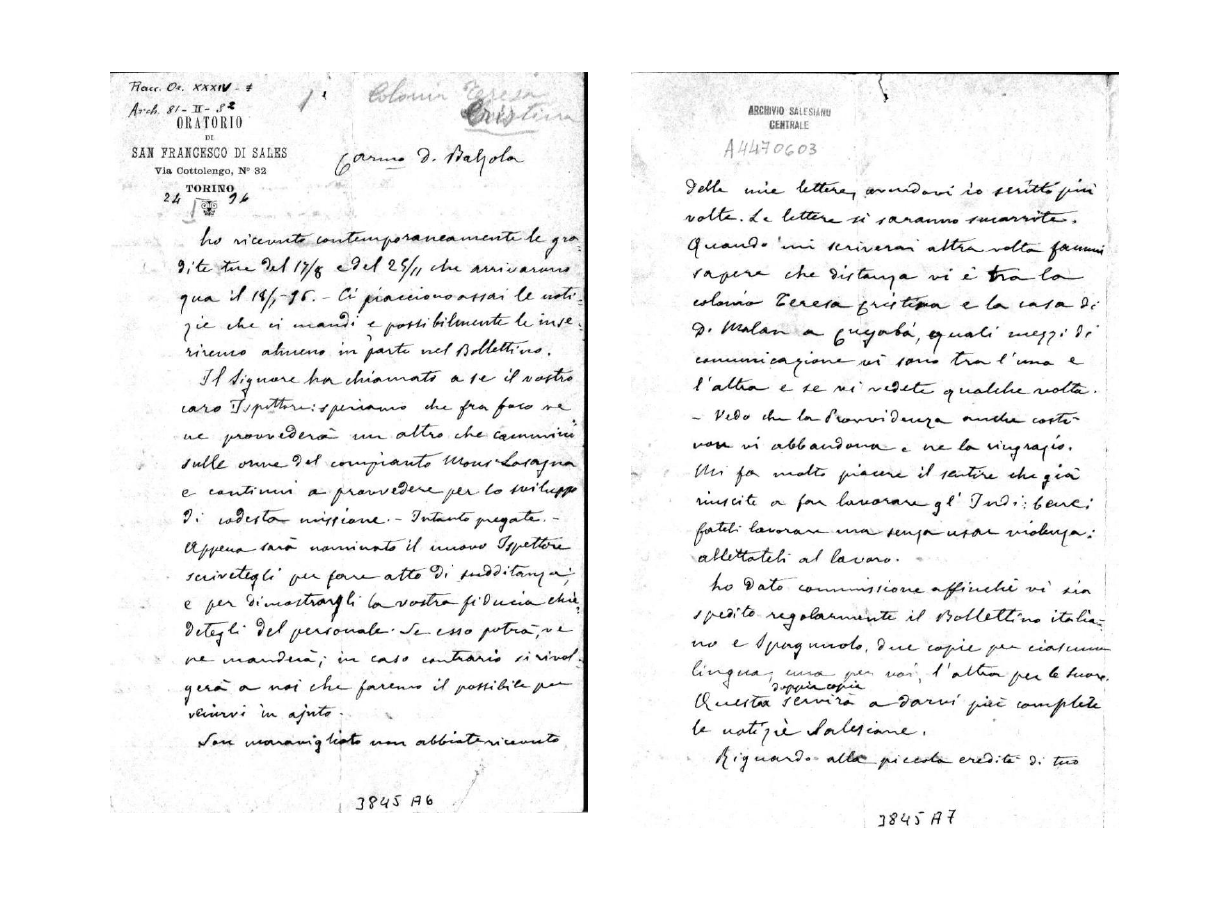 Fasc. Or. XXXIV - 7
Arch. 81 - II - 82
Colonia Teresa
Cristina
ORATORIO
DI
SAN FRANCESCO DI SALES
Via Cottolengo, N° 32
TORINO
24 96
Carmo D. Balzola
ho ricevuto contemporaneamente le gra-
dite tue del 17/8 e del 25/11 che arrivarono
qua il 18/1-96. - Ci piacciono assai le noti-
zie che ci mandi e possibilmente le inse-
riremo almeno in parte nel Bollettino.
Il Signore ha chiamato a se il vostro
caro Ispettore: speriamo che fra poco ve
ne provvederà un altro che cammini
sulle orme del compianto Mons Lasagna
e continui a provvedere per lo sviluppo
di codesta missione. - Intanto pregate. -
Appena sarà nominato il nuovo Ispettore
scrivetegli per fare atto di sudditanza,
e per dimostrargli la vostra fiducia chie-
detegli del personale. Se esso potrà, ve
ne manderà; in caso contrario si rivol-
gerà a noi che faremo il possibile per
venirvi in ajuto.
Son maravigliato non abbiate ricevuto
3845 A6
ARCHIVIO SALESIANO
CENTRALE
A4470603
delle mie lettere, avendovi io scritto più
volte. Le lettere si saranno smarrite.
Quando mi scriverai altra volta fammi
sapere che distanza vi è tra la
colonia Teresa Cristina e la casa di
D. Malan a Cuyabá, quali mezzi di
comunicazione vi sono tra l'una e
l'altra e se vi vedete qualche volta.
- Vedo che la Provvidenza anche costì
non vi abbandona e ne la ringrazio.
Mi fa molto piacere il sentire che già
riuscite a far lavorare gl' Indi:
fateli lavorare ma senza usar violenza:
allettateli al lavoro.
ho dato commissione affinchè vi sia
spedito regolarmente il Bollettino italia-
no e Spagnuolo, due copie per ciascuna
lingua, una per voi, l'altra per le suore.
doppia copia
Questa servirà a darvi più complete
le notizie Salesiane.
Riguardo alla piccola eredità di tuo
3845 A7